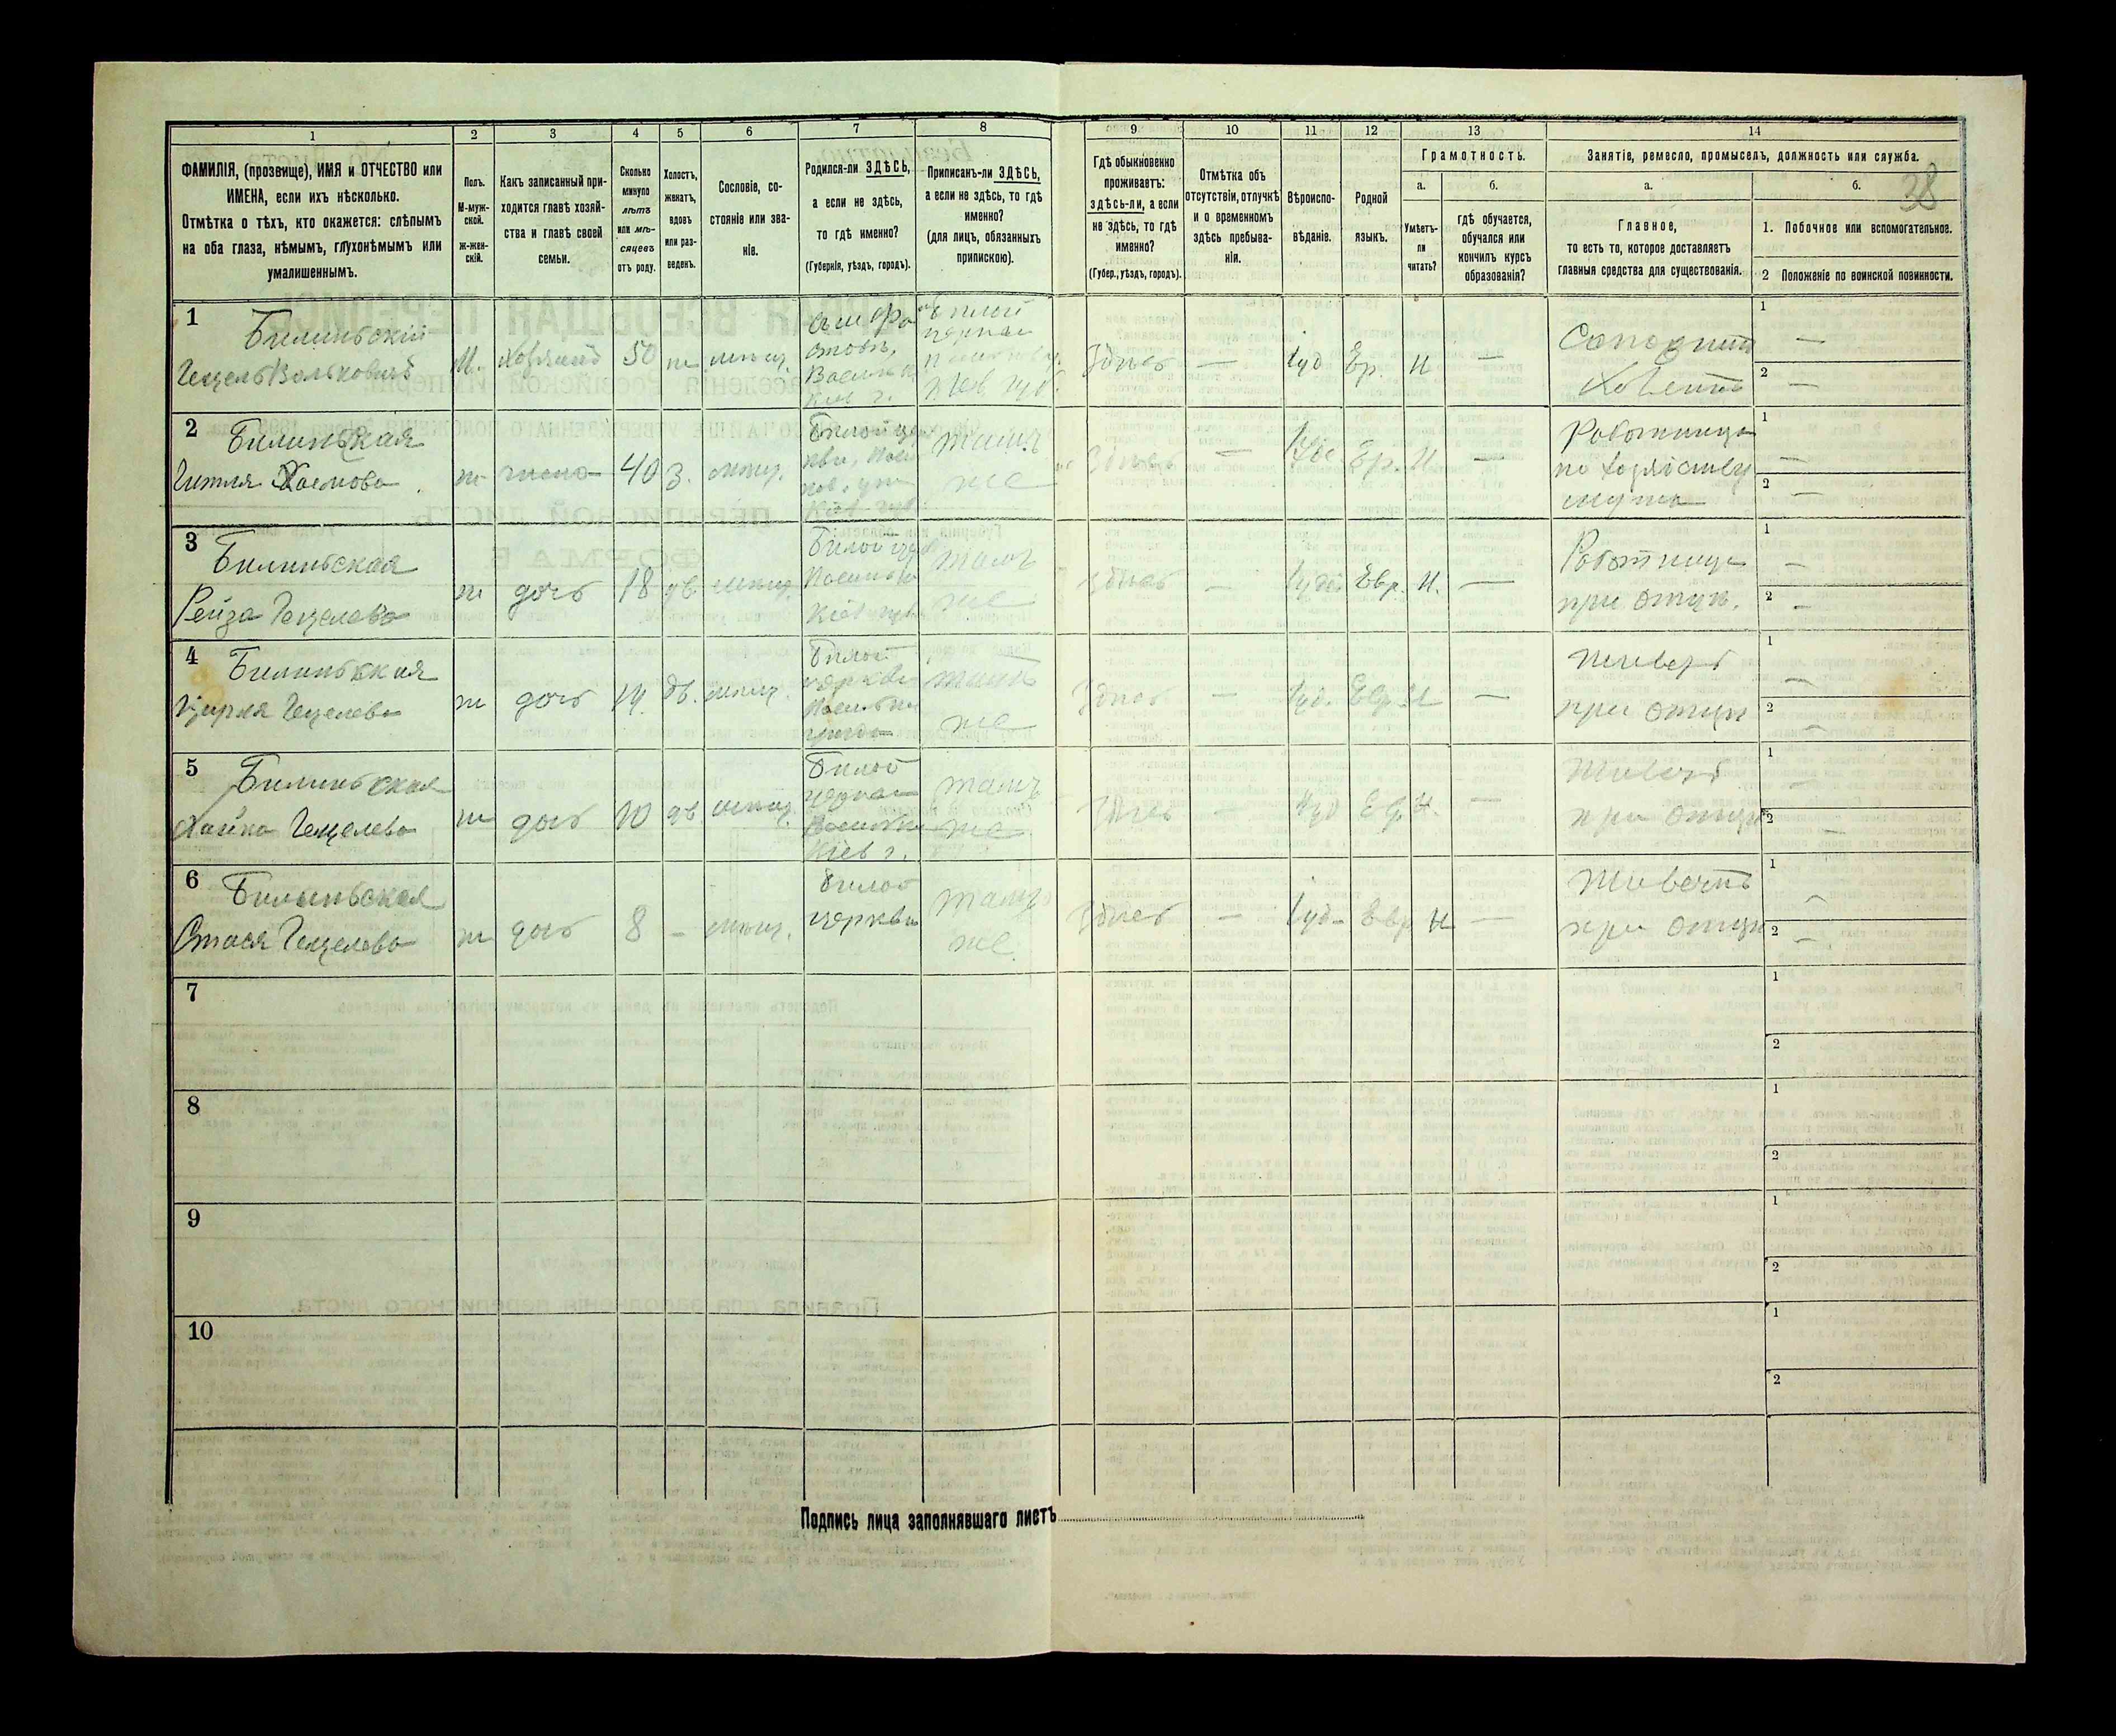 1
2
3
4
5
6
7
8
9
10
11
12
13
14
ФАМИЛІЯ, (прозвище), ИМЯ и ОТЧЕСТВО или
ИМЕНА, если ихъ нѣсколько.
Отмѣтка о тѣхъ, кто окажется: слѣпымъ
на оба глаза, нѣмымъ, глухонѣмымъ или
умалишеннымъ.
Полъ.
М-муж-
ской.
ж-жен-
скій.
Какъ записанный при-
ходится главѣ хозяй-
ства и главѣ своей
семьи.
Сколько
минуло
лѣтъ
или мѣ-
сяцевъ
отъ роду.
Холостъ,
женатъ,
вдовъ
или раз-
веденъ.
Сословіе, со-
стояніе или зва-
ніе.
Родился-ли ЗДѢСЬ,
а если не здѣсь,
то гдѣ именно?
(Губернія, уѣздъ, городъ).
Приписанъ-ли ЗДѢСЬ,
а если не здѣсь, то гдѣ
именно?
(для лицъ, обязанныхъ
припискою).
Гдѣ обыкновенно
проживаетъ:
здѣсь-ли, а если
не здѣсь, то гдѣ
именно?
(Губер., уѣздъ, городъ).
Отмѣтка объ
отсутствіи, отлучкѣ
и о временномъ
здѣсь пребыва-
ніи.
Вѣроиспо-
вѣданіе.
Родной
языкъ.
Грамотность.
а.
б.
Умѣетъ-
ли
читать?
гдѣ обучается,
обучался или
кончилъ курсъ
образованія?
Занятіе, ремесло, промыселъ, должность или служба.
38
а.
б.
Главное,
то есть то, которое доставляетъ
главныя средства для существованія.
1. Побочное или вспомогательное.
2 Положеніе по воинской повинности.
1
Билиньскій
Гецель Вольковичъ
М. Хозяинъ 50 же
Здѣсь — Іуд. Ер. Н —
1 —
2 —
2
Билиньская
Гитля Хаимова
ж жена 40 з.
Бѣлой
тамъ
же
Здѣсь — Ер. Н —
Работница
по хозяйству
мужа
1 —
2 —
3
Билиньская
Рейза Гецелева
ж дочь 18 дѣ
Бѣлой
тамъ
же
Здѣсь — Евр. Н. —
Работница
при отцѣ.
1 —
2 —
4
Билиньская
Гецелева
ж дочь 14 дѣ.
Бѣлой
церкви
тамъ
же
Здѣсь — Іуд. Евр Н —
Живетъ
при отцѣ
1 —
2 —
5
Билиньская
Хайка Гецелева
ж дочь 10 дѣ
Бѣлой
Кіев г.
тамъ
же
Здѣсь — Іуд Н. —
Живетъ
при отцѣ
1 —
2 —
6
Билиньская
Стася Гецелева
ж дочь 8 —
Бѣлой
церкви
тамъ
же
Здѣсь — Іуд Евр Н —
Живетъ
при отцѣ
1 —
2 —
7
1
2
8
1
2
9
1
2
10
1
2
Подпись лица заполнявшаго листъ